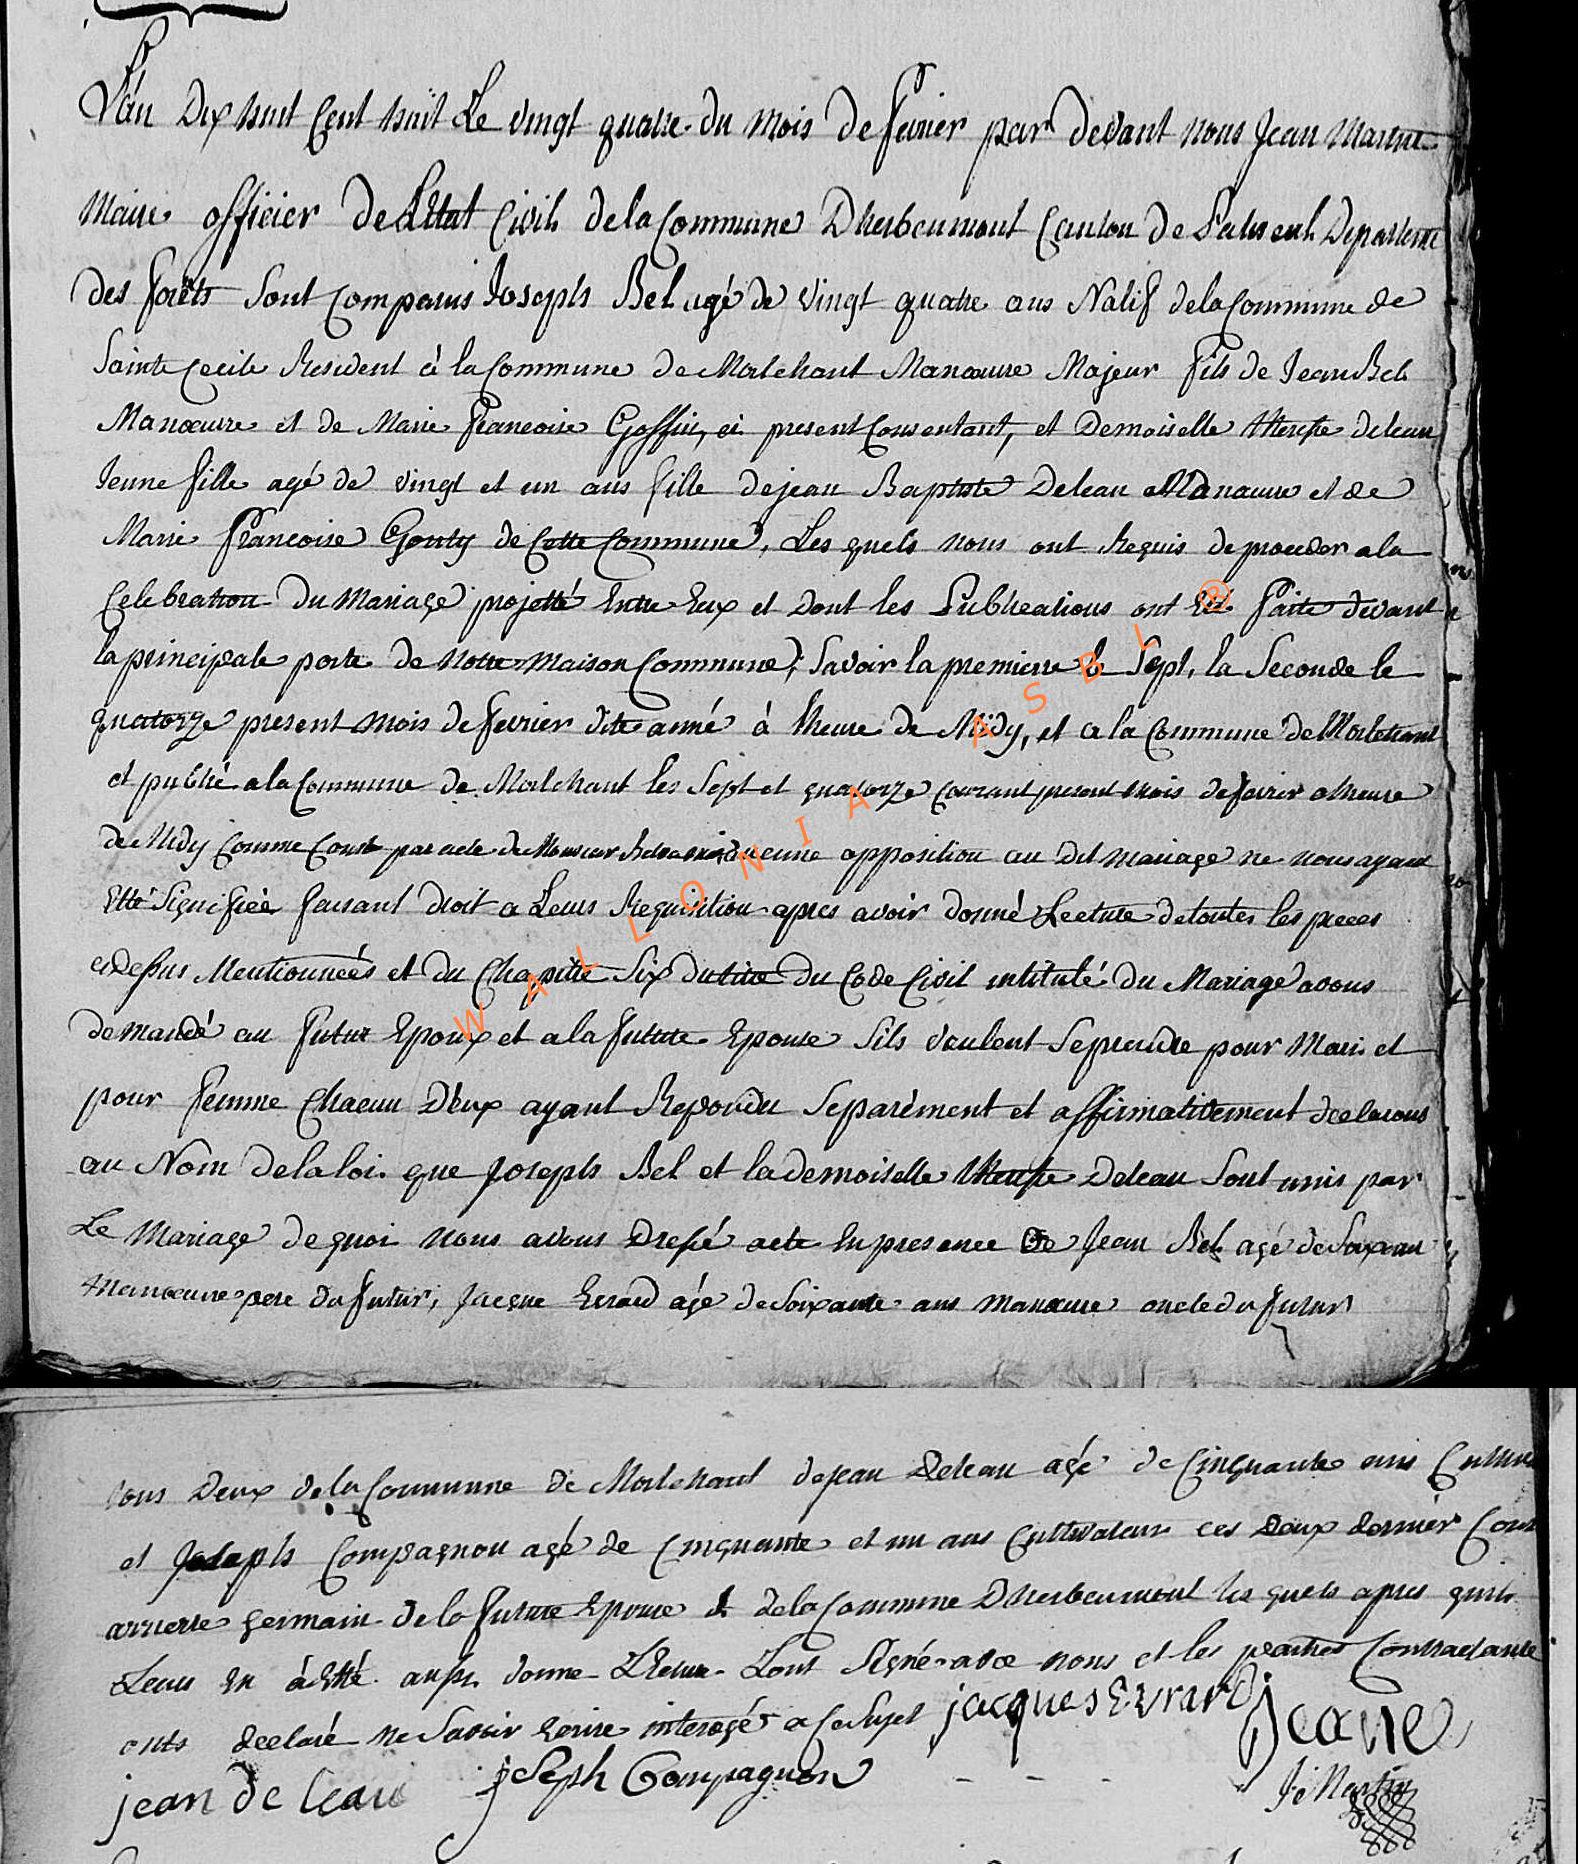 L'an Dix huit Cent huit Le vingt quatre du mois de fevrier par devant nous Jean Martin
Maire officier de L'Etat Civil de la Commune D'herbeumont Canton de Paliseul Departement
des forêts Sont Comparus Joseph Bel agé de vingt quatre ans Natif de la Commune de
Sainte Cecile Resident à la Commune de Mortehant Manœuvre Majeur fils de Jean Bel
Manœuvre et de Marie francoise Goffin, ci present Consentant, et Demoiselle therese deleau
Jeune fille agé de vingt et un ans fille de jean Baptiste Deleau Manœuvre et de
Marie francoise Gouty de Cette Commune, Les quels nous ont Requis de proceder a la
Celebration du Mariage projetté Entre Eux et Dont les Publications ont Eté faite devant
la principale porte de Notre Maison Commune, Savoir la premiere le Sept, la Seconde le
quatorze present mois de fevrier dite anné à l'heure de Midy, et a la Commune de Mortehant
et publié a la Commune de Mortehant les Sept et quatorze Courant present mois de fevrier a l'heure
de Midy Comme Conste par acte de Monsieur aucune opposition au Dit mariage ne nous ayant
Etté Signifiée faisant droit a Leurs Requisition apres avoir donné Lecture de toutes les pieces
cidessus Mentionnées et du Chapitre Six du titre du Code Civil intitulé du Mariage avons
demandé au futur Epoux et a la future Epouse Sils veulent Se prendre pour Maris et
pour femme Chacun D'eux ayant Repondu Separément et affirmativement declarons
au Nom de la loi que Joseph Bel et la demoiselle therese Deleau Sont unis par
Le Mariage de quoi nous avons Dressé acte En presence De Jean Bel agé de
Manœuvre pere du futur, Jacque Evrard agé de Soixante ans manœuvre oncle du futur
tous Deux de la Commune de Mortehant de jean Deleau agé de Cinquante ans
et Joseph Compagnon agé de Cinquante et un ans Cultivateur ces Deux dernier
arriere germain de la future Epouse de la Commune D'herbeumont les quels apres quil
Leur En à Etté aussi donne Lecture Sont Signé avec nous et les parties Contractante
onts declaré ne Savoir Ecrire interogés a Ce Sujet jacques Evrard
jean de leau joseph Compagnon
J: Martin
WALLONIA ASBL ®